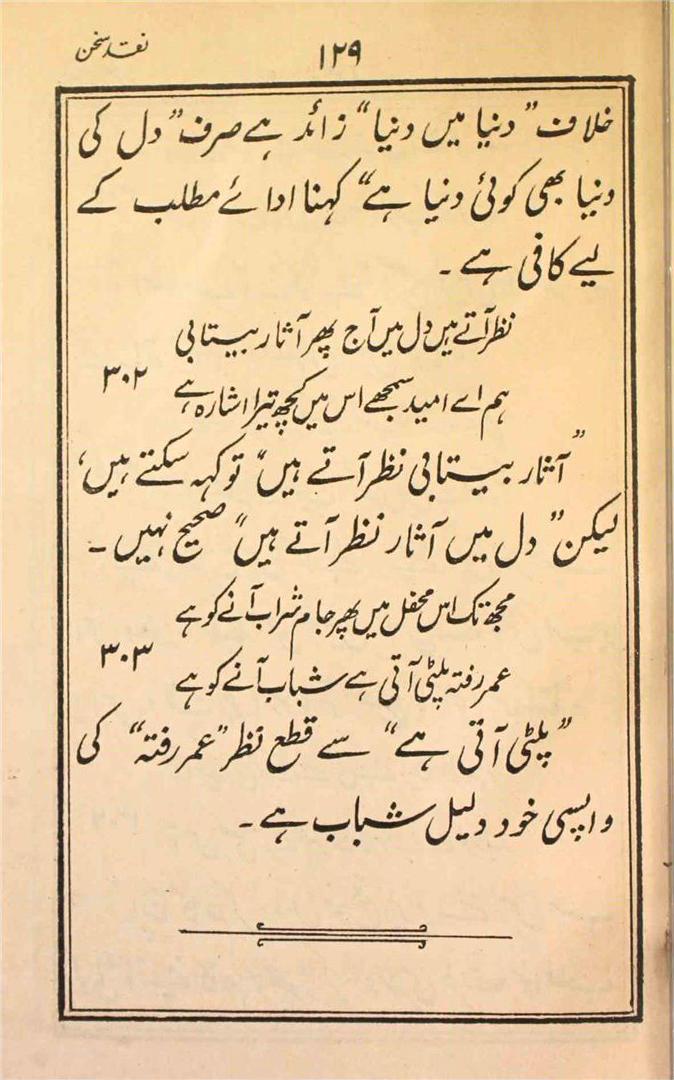 نقد سخن
۱۲۹
خلاف ”دنیا میں دنیا“ زائد ہے صرف ”دل کی
دنیا بھی کوئی دنیا ہے“ کہنا ادائے مطلب کے
لیے کافی ہے ۔
نظر آتے ہیں دل میں آج پھر آثار بیتابی
۳۰۲
ہم اے امید سمجھے اس میں کچھ تیرا اشارہ ہے
”آثار بیتابی نظر آتے ہیں“ تو کہہ سکتے ہیں،
لیکن ”دل میں آثار نظر آتے ہیں“ صحیح نہیں ۔
مجھ تک اس محفل میں پھر جام شراب آنے کو ہے
۳۰۳
عمر رفتہ پلٹی آتی ہے شباب آنے کو ہے
”پلٹی آتی ہے“ سے قطع نظر ”عمر رفتہ“ کی
واپسی خود دلیل شباب ہے ۔